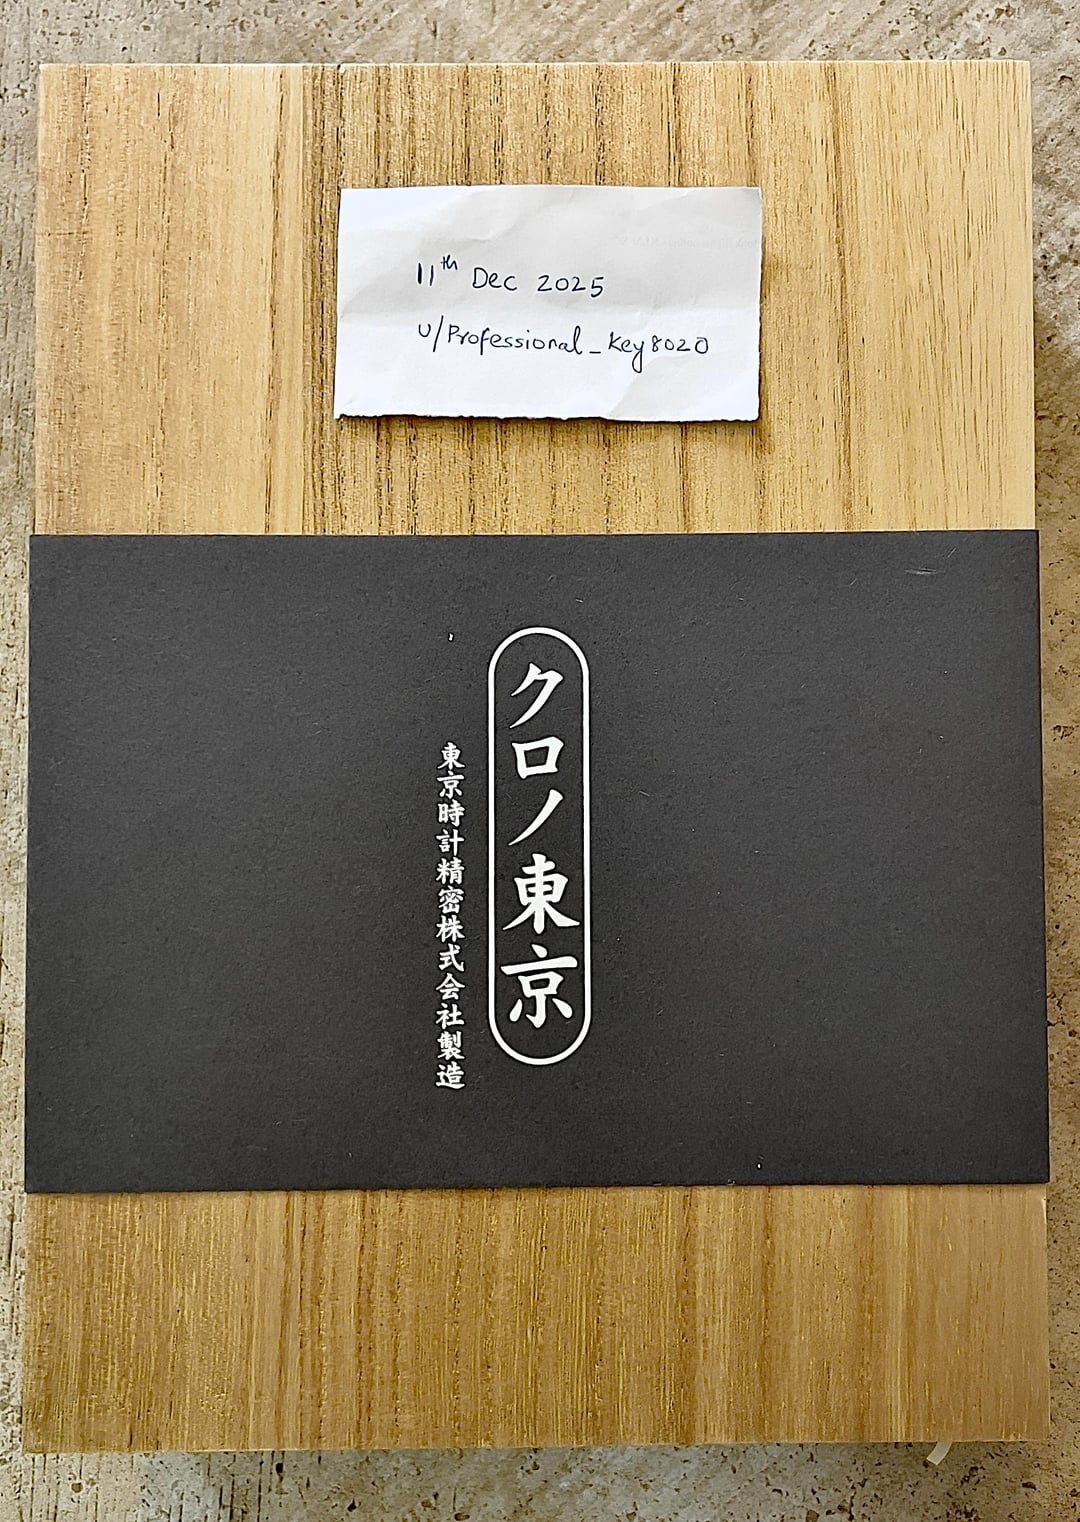 11th Dec 2025
u/Professional_Key8020
クロノ東京
東京時計精密株式会社製造